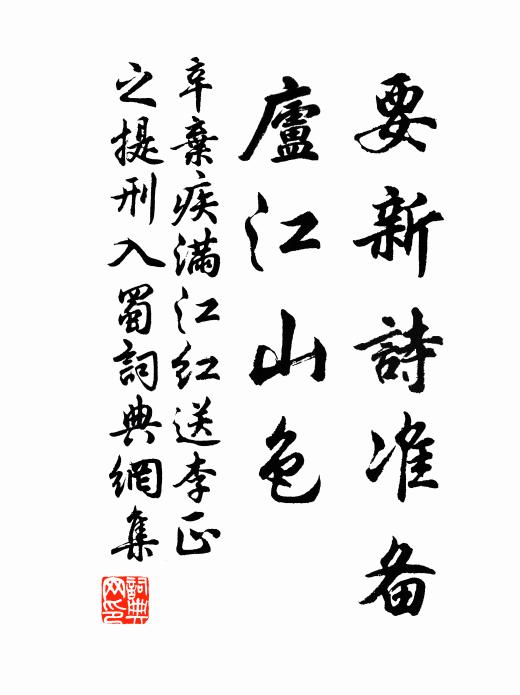 要新詩准备
廬江山色
辛棄疾满江红送李正
之提刑入蜀詞典網集
詞典
网印